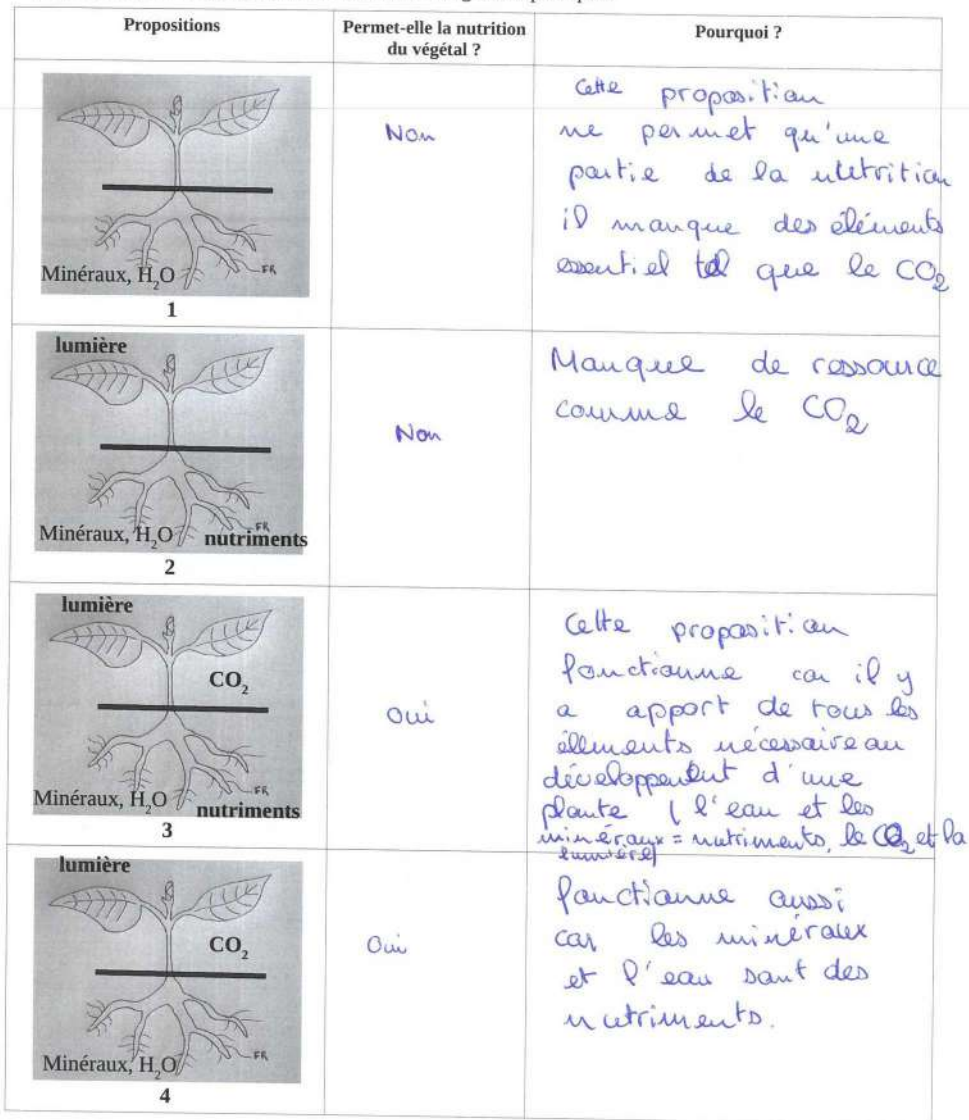 Propositions
Permet-elle la nutrition
du végétal ?
Pourquoi ?
Minéraux, H₂O
FR
1
Non
Cette proposition
ne permet qu'une
partie de la nutrition
il manque des éléments
essentiel tel que le CO₂
lumière
Minéraux, H₂O
FR
nutriments
2
Non
Manque de ressource
comme le CO₂
lumière
CO₂
Minéraux, H₂O
FR
nutriments
3
Oui
Cette proposition
fonctionne car il y
a apport de tous les
éllements nécessaire au
développement d'une
plante ( l'eau et les
minéraux = nutriments, le CO₂ et la
lumière)
lumière
CO₂
Minéraux, H₂O
FR
4
Oui
fonctionne aussi
car les minéraux
et l'eau sont des
nutriments.